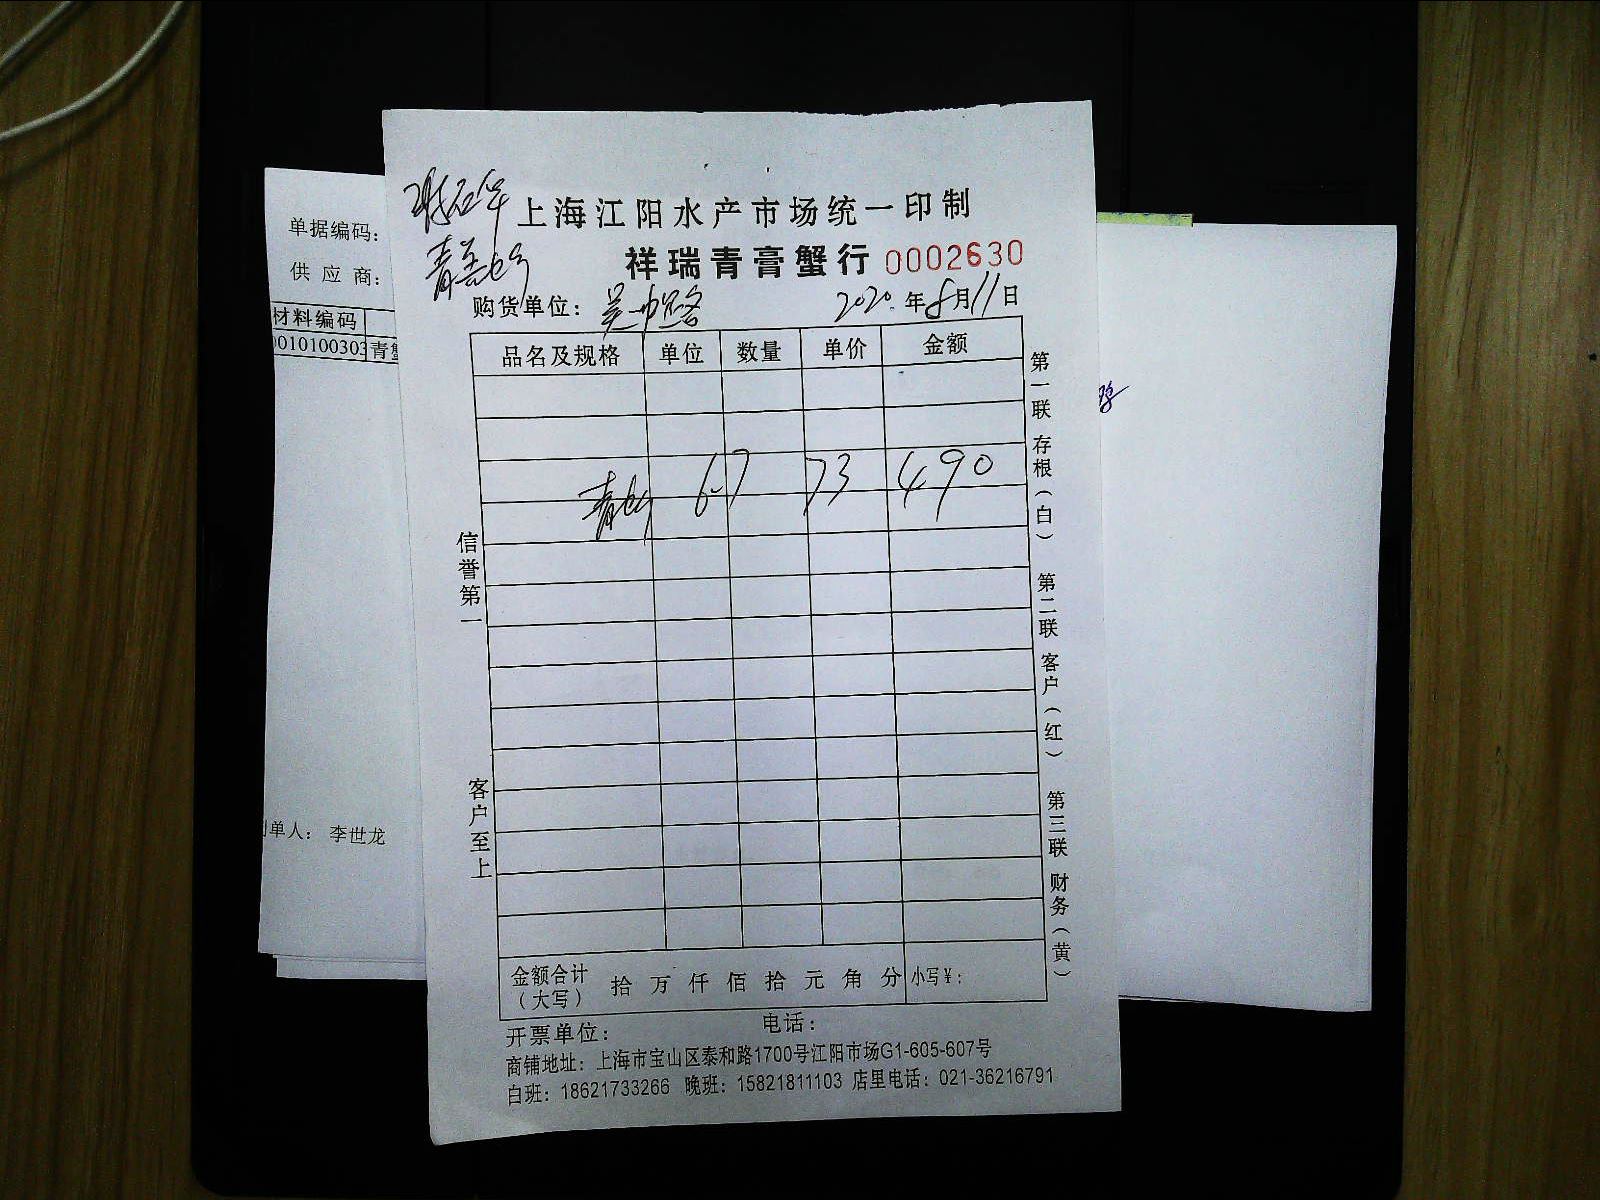 上海江阳水产市场统一印制
祥瑞青膏蟹行 0002630
购货单位： 2020年8月11日
品名及规格 单位 数量 单价 金额
6.7 73 490
金额合计（大写） 拾 万 仟 佰 拾 元 角 分 小写￥：
开票单位： 电话：
商铺地址：上海市宝山区泰和路1700号江阳市场G1-605-607号
白班：18621733266 晚班：15821811103 店里电话：021-36216791
信誉第一
客户至上
第一联 存根（白）
第二联 客户（红）
第三联 财务（黄）
单据编码：
供应商：
材料编码
010100303 青蟹
单人： 李世龙